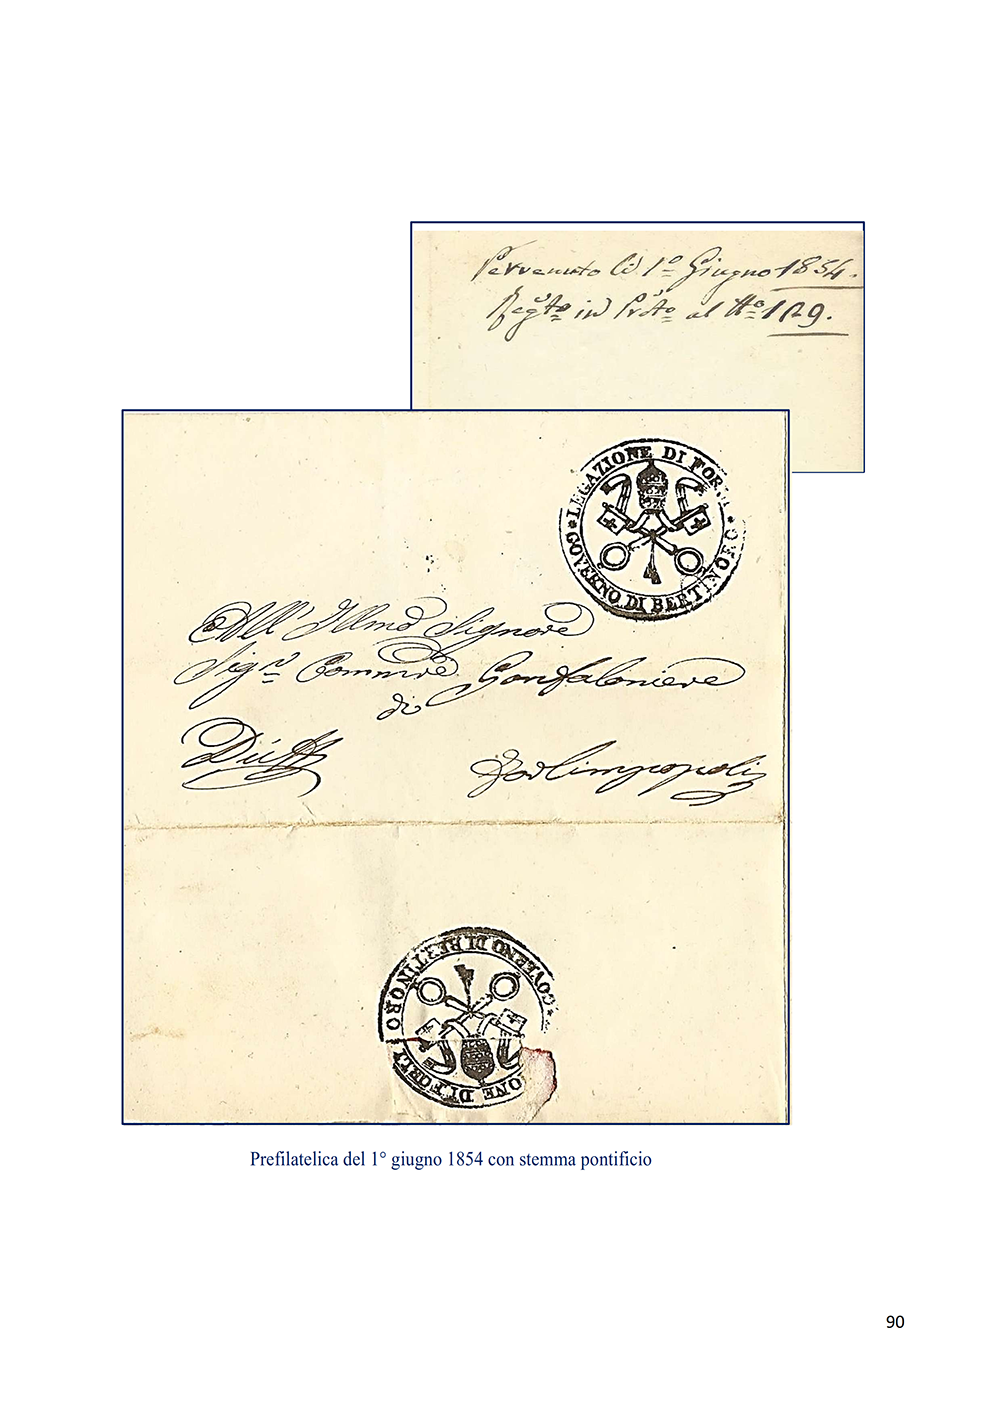 Pervenuto li 1º Giugno 1854.
Regto in Proto al Nº 129.
LEGAZIONE DI FORLI
* GOVERNO DI BERTINORO *
All' Illmo Signore
Sigr Commre Gonfaloniere
di
Forlimpopoli
GOVERNO DI BERTINORO
IONE DI FORLI
Prefilatelica del 1° giugno 1854 con stemma pontificio
90